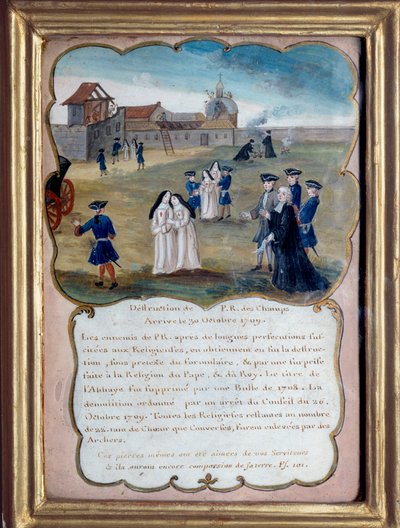 Destruction de P.R. des Champs
Arrivée le 30 Octobre 1709.
Les ennemis de P.R. après de longues persecutions sus-
citées aux Religieuses, en obtiennent en fin la destruc-
tion, sous pretexte du Formulaire, & par une surprise
faite à la Religion du Pape, & du Roy. Le titre de
l'Abbaye fut supprimé par une Bulle de 1708. La
démolition ordonné par un arrêt du Conseil du 26.
Octobre 1709. Toutes les Religieuses restantes au nombre
de 22. tant de Chœur que Converses, furent enlevées par des
Archers.
Ces pierres mêmes ont été aimées de vos Serviteurs
& ils auront encore compassion de sa terre. Ps. 101.